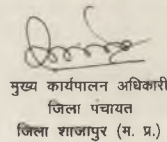 मुख्य कार्यपालन अधिकारी
जिला पंचायत
जिला शाजापुर (म. प्र.)